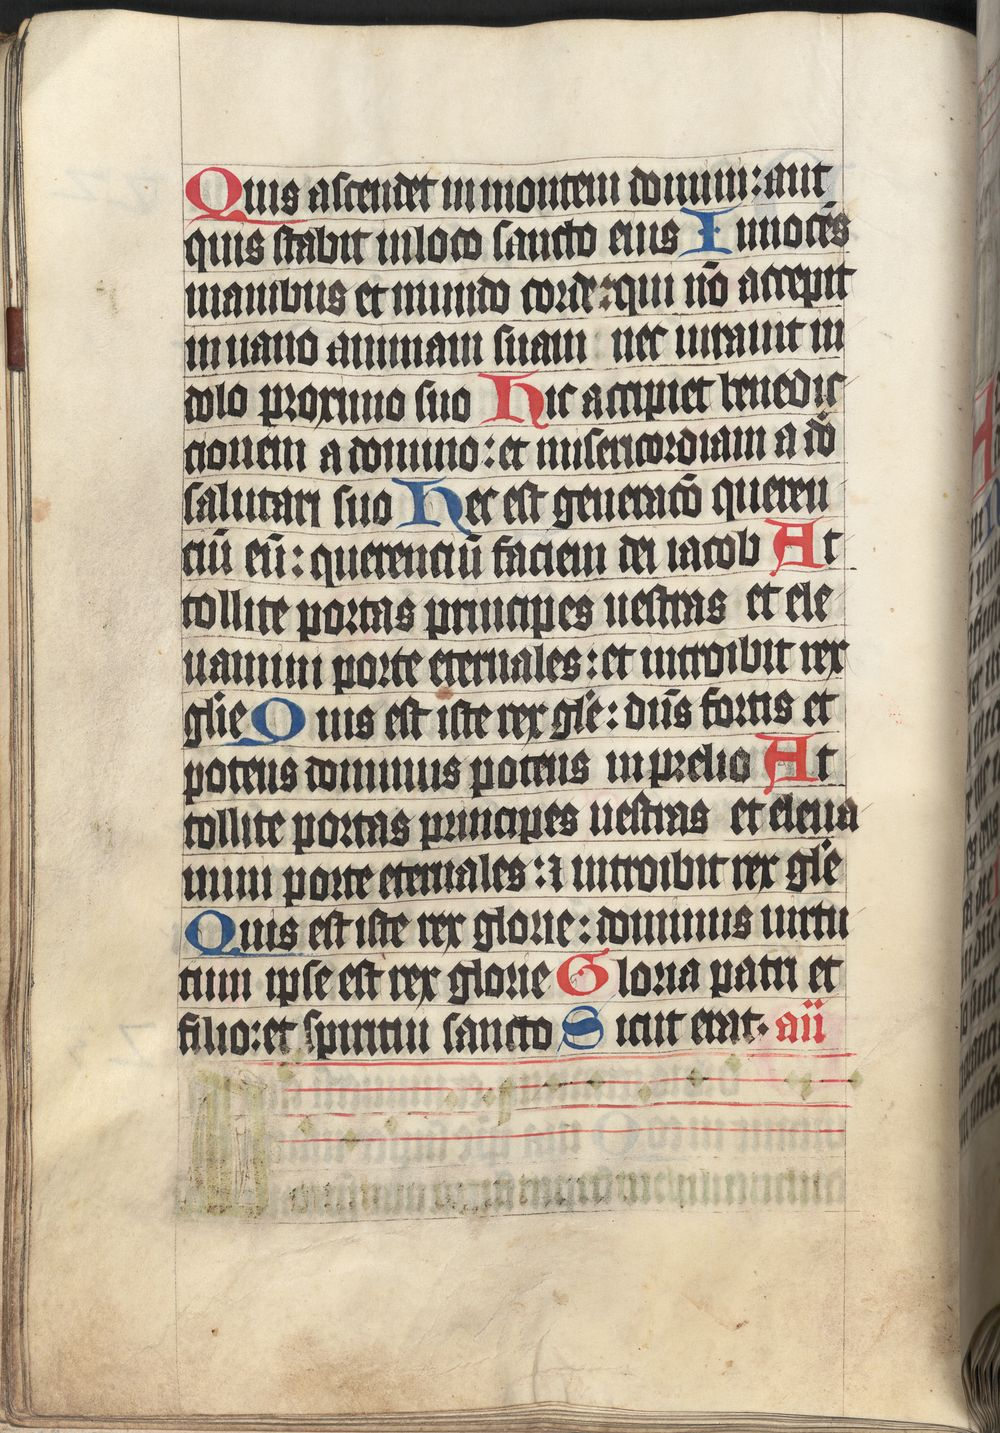 Quis ascendet in montem domini: aut
quis stabit in loco sancto eius Innocēs
manibus et mundo corde: qui nō accepit
in uano animam suam nec iurauit in
dolo proximo suo Hic accipiet benedic
tionem a domino: et misericordiam a dō
salutari suo Hec est generacō queren
ciū eū: querenciū faciem dei iacob At
tollite portas principes uestras et ele
uamini porte eternales: et introibit rex
glīe Quis est iste rex glē: dn̄s fortis et
potens dominus potens in prelio At
tollite portas principes uestras et eleua
mini porte eternales: ⁊ introibit rex glē
Quis est iste rex glorie: dominus uirtu
tum ipse est rex glorie Gloria patri et
filio: et spiritui sancto Sicut erat. añ